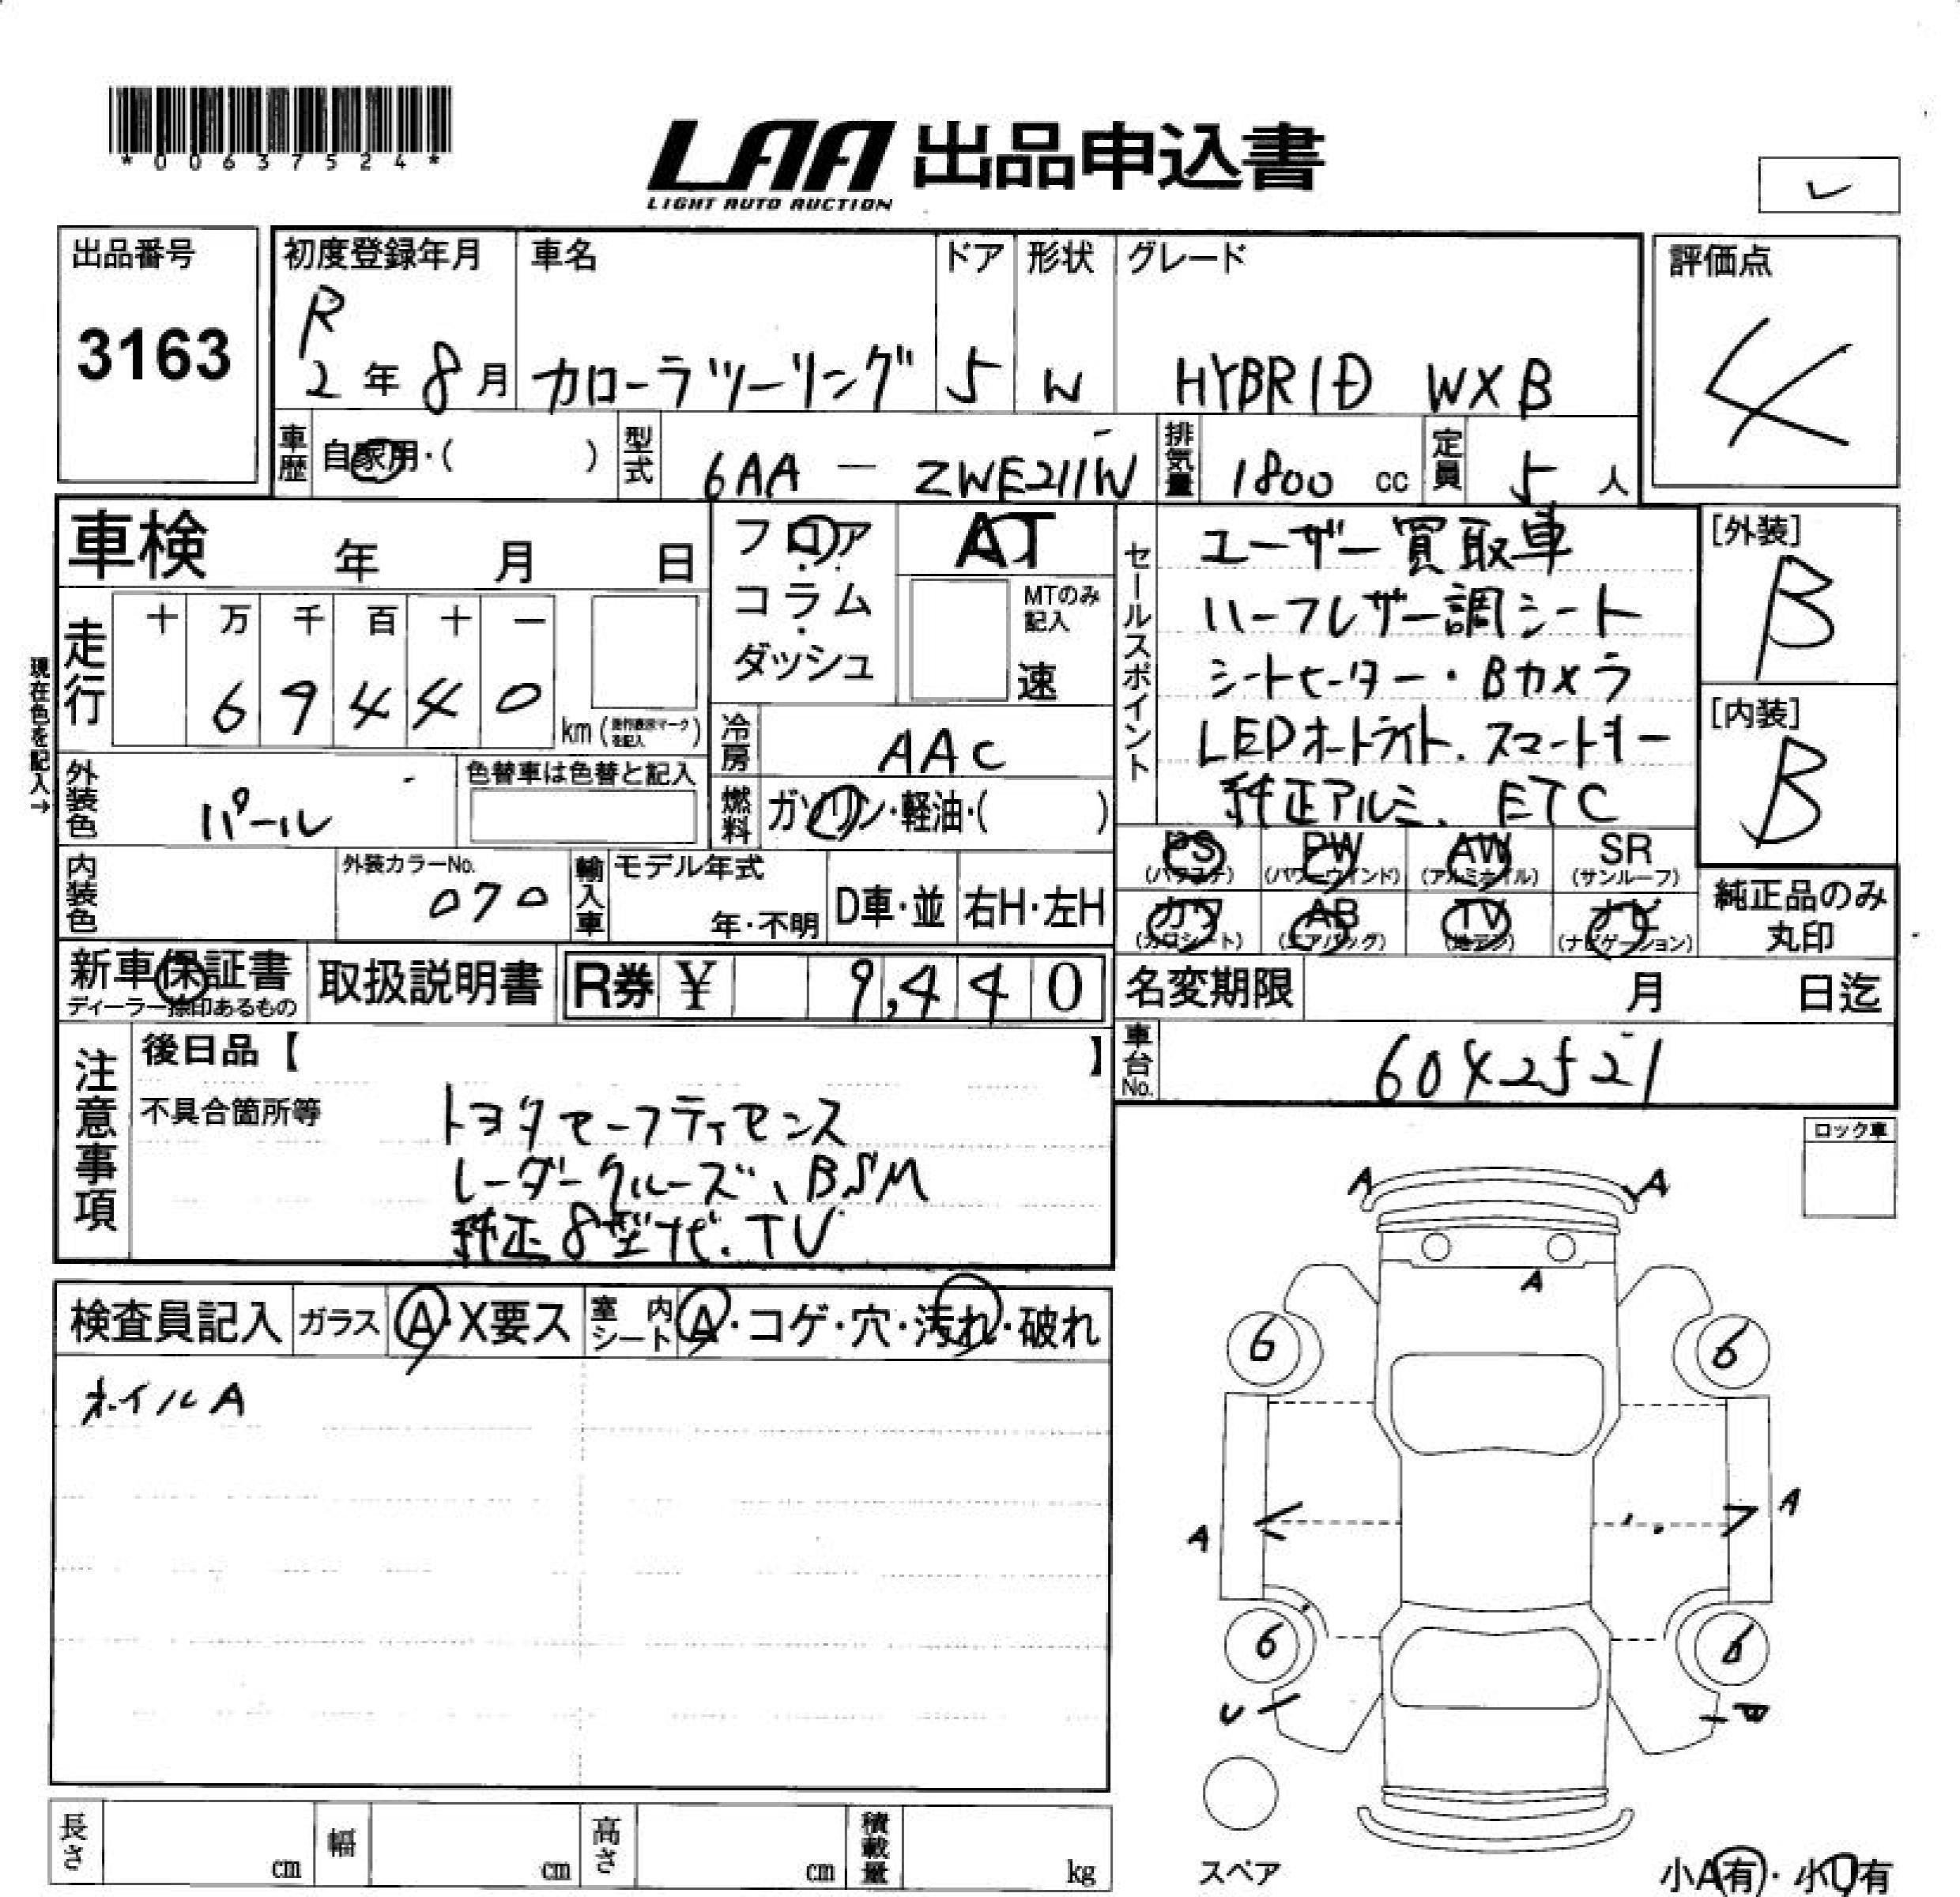 *00637524*
LAA 出品申込書
LIGHT AUTO AUCTION
レ
出品番号
3163
初度登録年月
R
2年8月
車名
カローラツーリング
ドア
5
形状
W
グレード
HYBRID WXB
評価点
4
車歴
自家用・( )
型式
6AA - ZWE211W
排気量
1800 cc
定員
5 人
車検 年 月 日
現在色を記入→
走行
十 万 千 百 十 一
6 9 4 4 0
km(走行表示マークを記入)
フロア
コラム
ダッシュ
AT
MTのみ
記入
速
冷房
AAC
燃料
ガソリン・軽油・( )
外装色
パール
色替車は色替と記入
内装色
外装カラーNo.
070
輸入車
モデル年式
年・不明
D車・並
右H・左H
セールスポイント
ユーザー買取車
ハーフレザー調シート
シートヒーター・Bカメラ
LEDオートライト.スマートキー
純正アルミ、ETC
[外装]
B
[内装]
B
PS
(パワステ)
PW
(パワーウインド)
AW
(アルミホイル)
SR
(サンルーフ)
カワ
(カワシート)
AB
(エアバッグ)
TV
(地デジ)
ナビ
(ナビゲーション)
純正品のみ
丸印
新車保証書
ディーラー捺印あるもの
取扱説明書
R券 ¥ 9,440
名変期限 月 日迄
車台No.
6042521
注意事項
後日品【 】
不具合箇所等
トヨタセーフティセンス
レーダークルーズ、BSM
純正8型ナビ.TV
ロック車
検査員記入
ガラス
A・X要ス
室内シート
A・コゲ・穴・汚れ・破れ
ホイルA
A A
A
6 6
A A
6 6
U B
スペア
小A有・小U有
長さ cm
幅 cm
高さ cm
積載量 kg